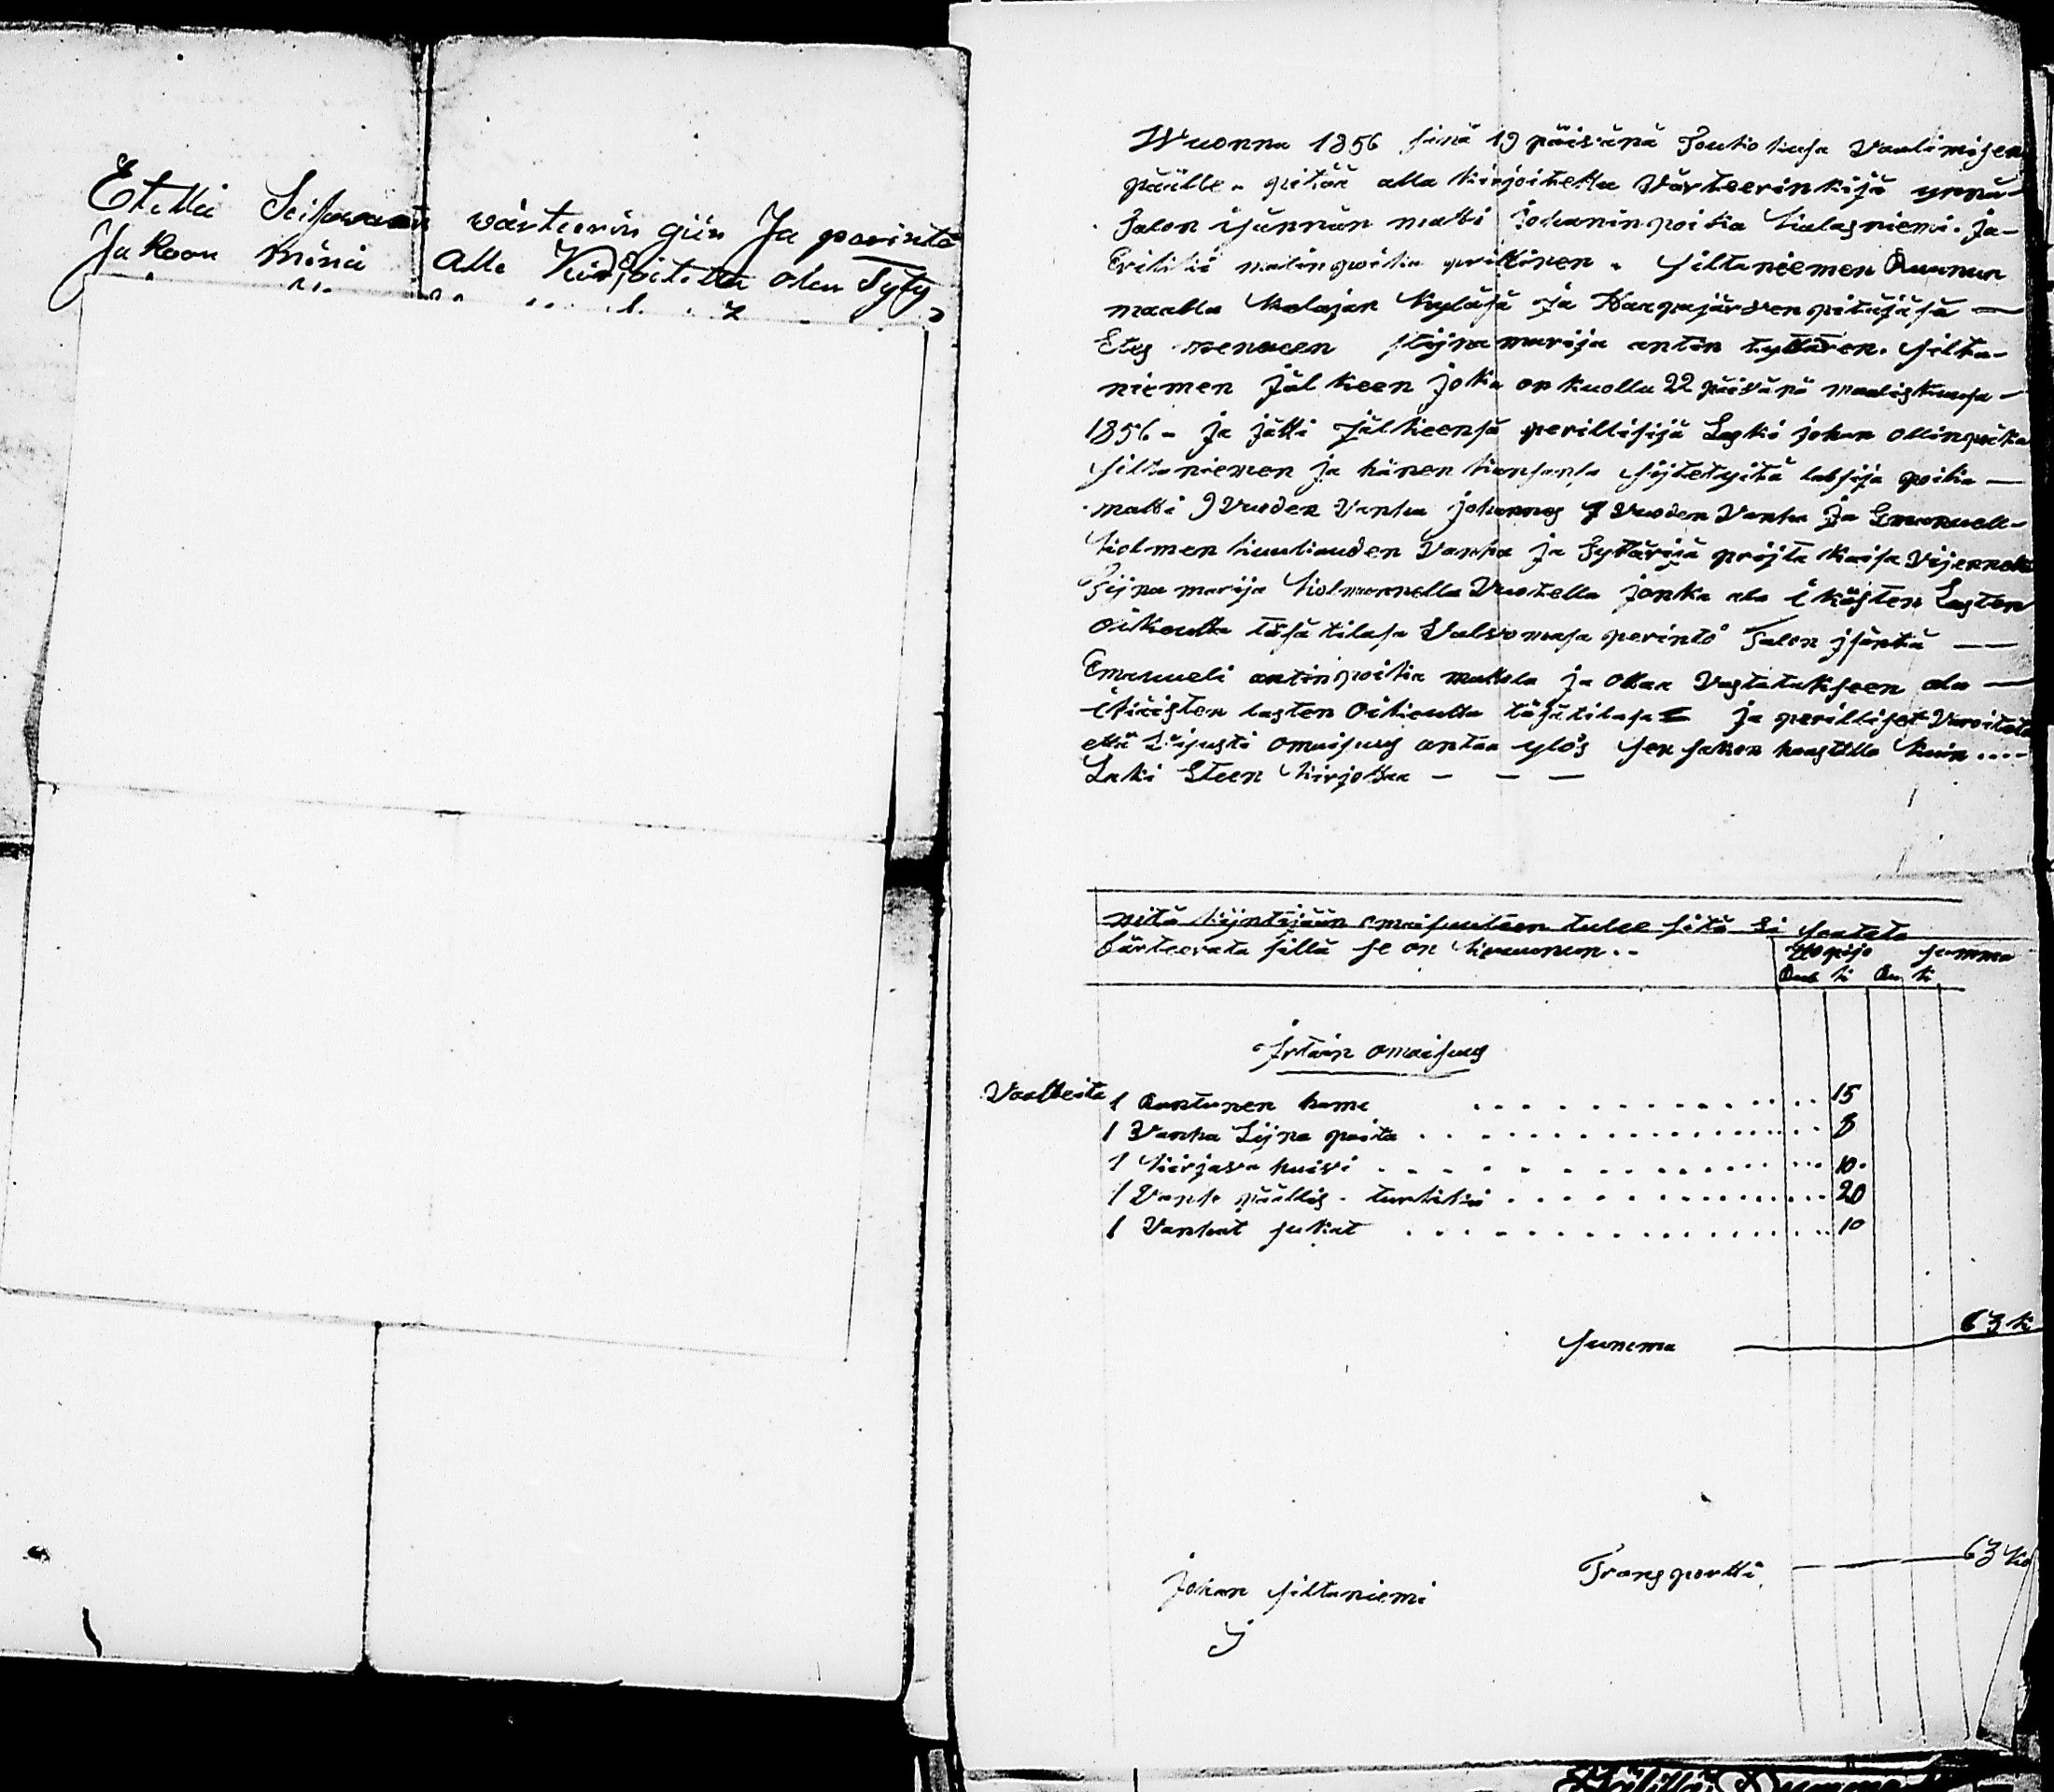 Että Seisovan värteerin giin Ja perintö
Jakoon minä Alle Kirjoitettu olen Tyty
Wuonna 1856 sinä 19 päivänä Toukokusa Vaatimisen
päälle. pitää alla kirjoitettu Värteerinkijä ynnä
Talon isännän matti Johaninpoika Kalasniemi. Ja-
Erikki matinpoika . siltaniemen Ruunun
maalla kalajan kyläsä ja Haapajärven pitäjäsä —
Etes menneen stijna marija antin tyttären. silta-
niemen jälkeen joka on kuollu 22 päivänä maaliskuusa -
1856 - ja jätti jälkeensä perillisijä Leski johan ollinpoika
siltaniemen ja hänen kansansa sijtetyitä labsija poika —
matti 9 Vuoden Vanha johannes 7 Vuoden Vanha ja Emanuell-
kolmen kuukauden Vanha ja Tytärijä prijta kaisa
Stijna marija kolmannella Vuotella jonka ala ikästen Lasten
oikeutta täsä tilasa Valvomasa perintö Talon isäntä —
Emanueli antinpoika mattila ja ottaa Vastatakseen ala —
ikäisten lasten oikeutta täsä tilasa ja perilliset Varoitata
että omaisuus antaa ylös sen saken haastilla kuin ....
Laki Eteen kirjottaa — — —
mitä kijntijään omaisuuteen tulee sitä Ei saateta
värteerata sillä se on kruunun ..
Hopisa summa
Rub k Ru k
Irtain omaisuus
Vaatteita 1 hame 15
1 Vanha Lijna paita 8
1 kirjava huivi 10
1 Vanha päällis - turkki 20
1 Vanhat sukat 10
summa — 63 k
Transportti — 63 ko
Johan siltaniemi